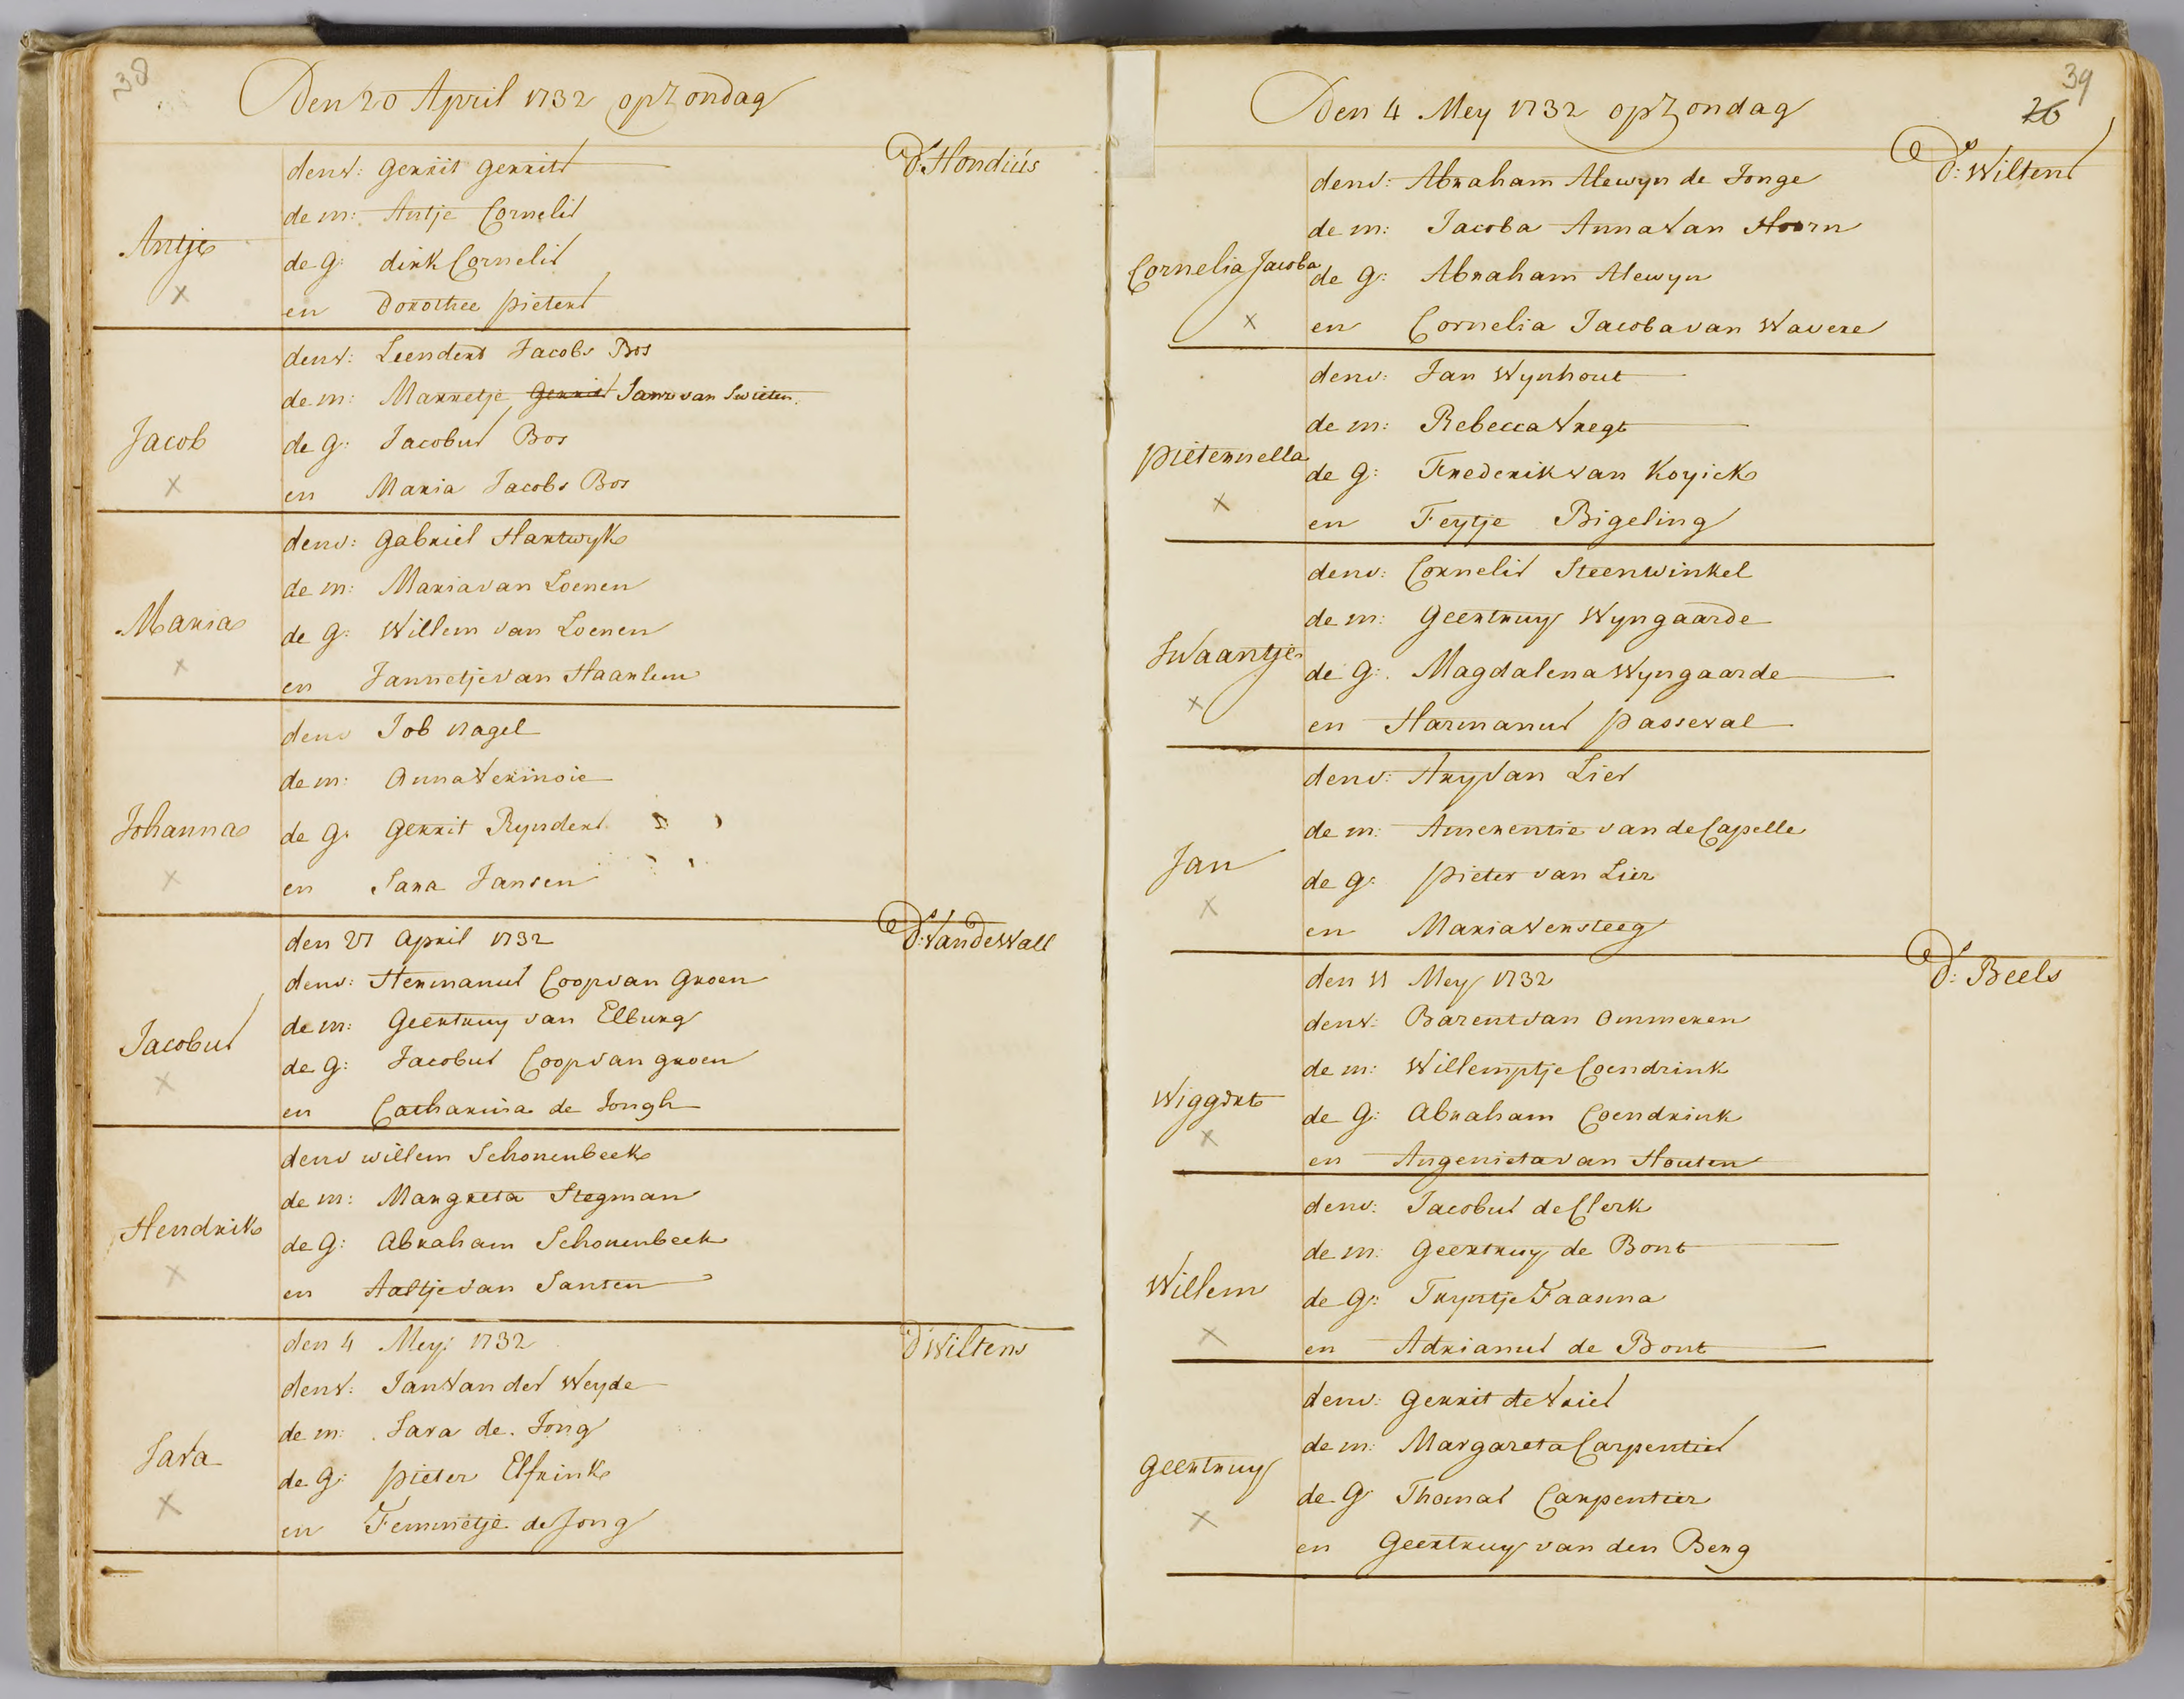 38
Den 20 April 1732 op Zondag
D: Hondius
den v: Gerrit Gerrits
de m: Antje Cornelis
Antje
de G: dirk Cornelis
x
en Dorothee pieters
den v: Leendert Jacobs Bos
de m: Marretje Gerrits Jans van Swieten
Jacob
de G: Jacobus Bos
x
en Maria Jacobs Bos
den v: Gabriel Hartwyk
de m: Maria van Loenen
Maria
de G: Willem van Loenen
x
en Jannetje van Haarlem
den v Job Nagel
de m: Anna Verinoie
Johanna
de G: Gerrit Rynders
x
en Sara Jansen
den 27 April 1732
D: Van de Wall
den v: Hermanus Coop van Groen
de m: Geertruy van Elburg
Jacobus
de G: Jacobus Coop van groen
x
en Catharina de Jongh
den v willem Schonenbeek
de m: Margreta Stegman
Hendrik
de G: Abraham Schonenbeek
x
en Aaltje van Santen
den 4 Mey 1732
D Wiltens
den v: Jan Van der Weyde
de m: Sara de Jong
Sara
de G: pieter Elfrink
x
en Femmetje de Jong
39
26
Den 4 Mey 1732 op Zondag
D: Wiltens
den v: Abraham Alewyn de Jonge
de m: Jacoba Anna Van Hoorn
Cornelia Jacoba
de G: Abraham Alewyn
x
en Cornelia Jacoba van Wavere
den v: Jan Wynhout
de m: Rebecca Vregt
pieternella
de G: Frederik van Koyick
x
en Feytje Bigeling
den v: Cornelis Steenwinkel
de m: Geertruy Wyngaarde
Swaantje
de G: Magdalena Wyngaarde
x
en Harmanus passeval
den v: Ary Van Lier
de m: Amerentie van de Capelle
Jan
de G: pieter van Lier
x
en Maria Versteeg
den 11 Mey 1732
D: Beels
den v: Barent van Ommeren
de m: Willemptje Coendrink
Wiggert
de G: Abraham Coendrink
x
en Angenieta van Houten
den v: Jacobus de Clerk
de m: Geertruy de Bont
Willem
de G: Tryntje Faasna
x
en Adrianus de Bont
den v: Gerrit de Vries
de m: Margareta Carpentier
Geertruy
de G Thomas Carpentier
x
en Geertruy van den Berg